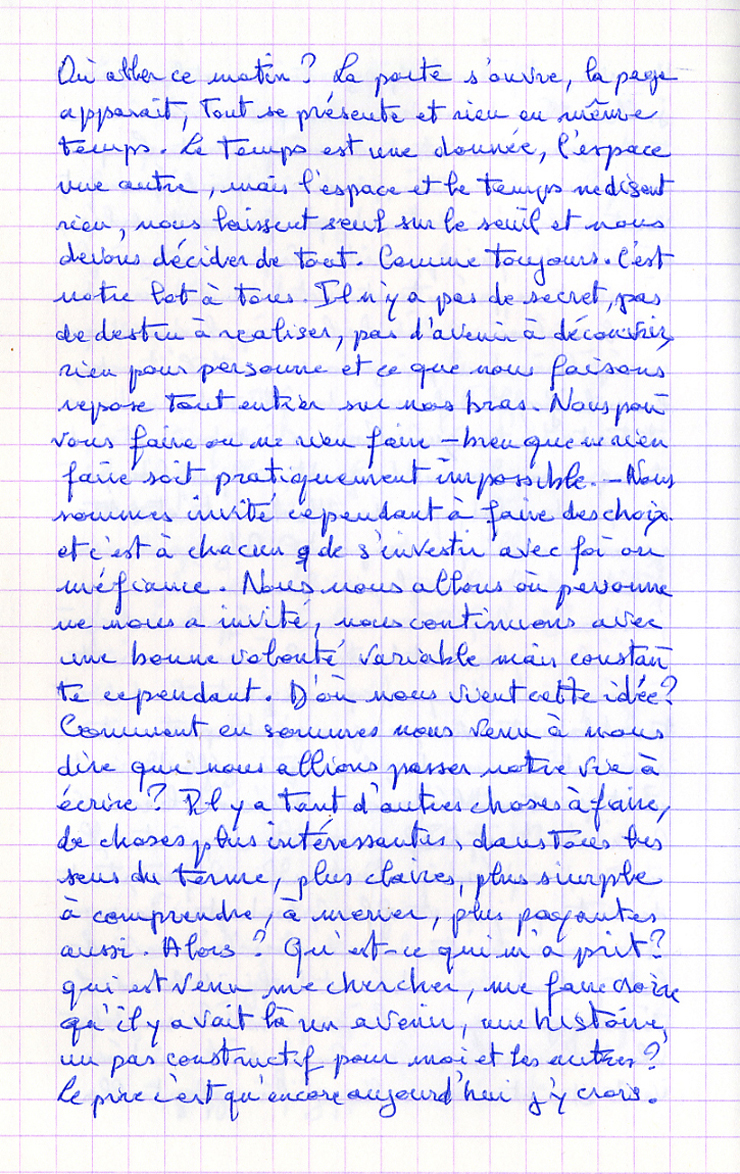 Où aller ce matin ? La porte s'ouvre, la page
apparait, Tout se présente et rien en même
temps. Le Temps est une donnée, l'espace
une autre, mais l'espace et le temps ne disent
rien, nous laissent seul sur le seuil et nous
devons décider de tout. Comme toujours. C'est
notre lot à tous. Il n'y a pas de secret, pas
de destin à realiser, pas d'avenir à découvrir,
rien pour personne et ce que nous faisons
repose tout entier sur nos bras. Nous pou
vons faire ou ne rien faire – bien que ne rien
faire soit pratiquement impossible. – Nous
sommes invité cependant à faire des choix
et c'est à chacun de s'investir avec foi ou
méfiance. Nous nous allons où personne
ne nous a invité, nous continuons avec
une bonne volonté variable mais constan
te cependant. D'où nous vient cette idée ?
Comment en sommes nous venu à nous
dire que nous allions passer notre vie à
écrire ? Il y a tant d'autres choses à faire,
de choses plus intéressantes, dans tous les
sens du terme, plus claires, plus simple
à comprendre, à mener, plus payantes
aussi. Alors ? Qu'est-ce qui m'a prit ?
qui est venu me chercher, me faire croire
qu'il y avait là un avenir, une histoire,
un pas constructif pour moi et les autres ?
Le pire c'est qu'encore aujourd'hui j'y crois.